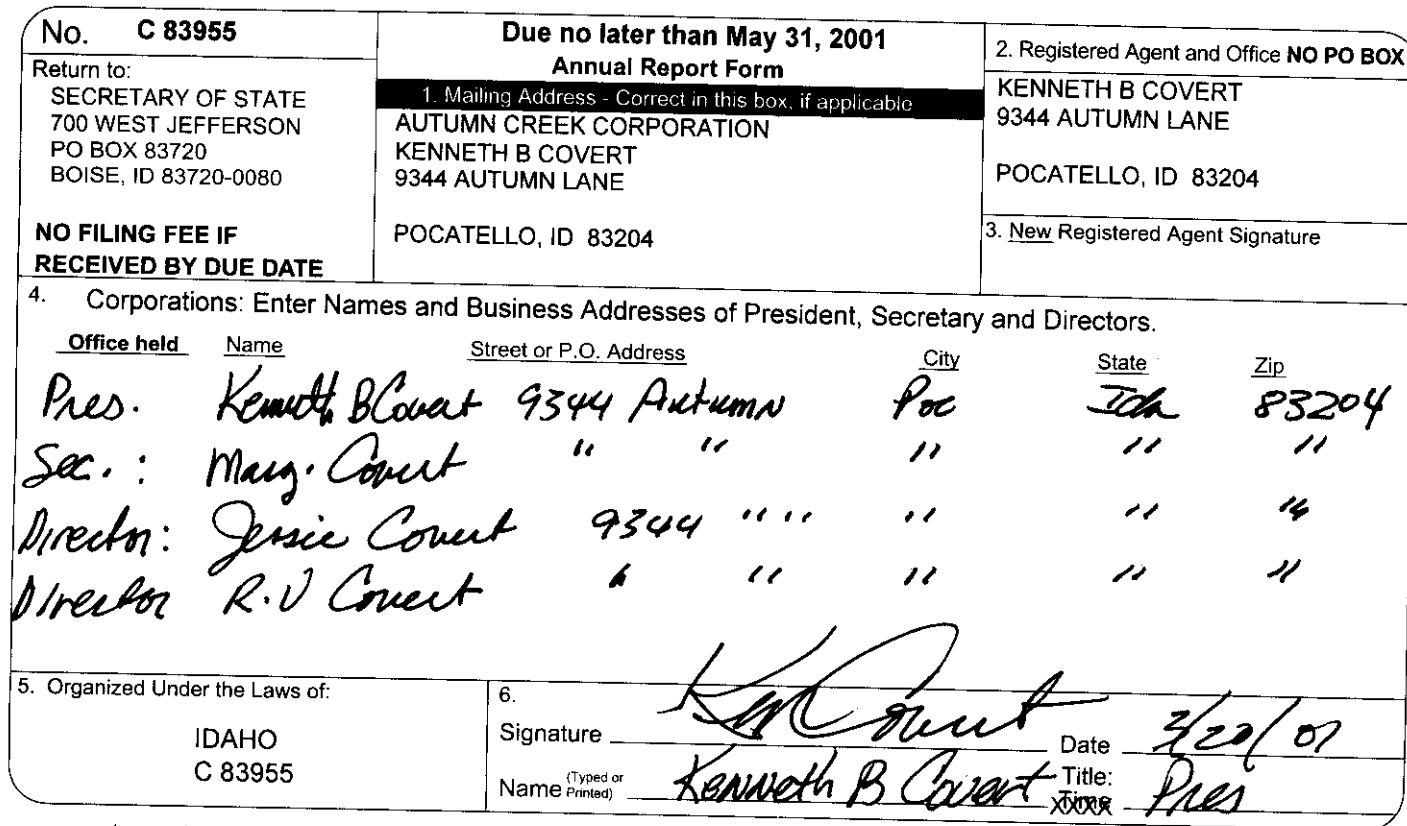 No. C 83955
Return to:
SECRETARY OF STATE
700 WEST JEFFERSON
PO BOX 83720
BOISE, ID 83720-0080
NO FILING FEE IF
RECEIVED BY DUE DATE
Due no later than May 31, 2001
Annual Report Form
1. Mailing Address - Correct in this box, if applicable
AUTUMN CREEK CORPORATION
KENNETH B COVERT
9344 AUTUMN LANE
POCATELLO, ID 83204
2. Registered Agent and Office NO PO BOX
KENNETH B COVERT
9344 AUTUMN LANE
POCATELLO, ID 83204
3. New Registered Agent Signature
4. Corporations: Enter Names and Business Addresses of President, Secretary and Directors.
Office held Name Street or P.O. Address City State Zip
Pres. Kenneth B Covert 9344 Autumn Poc Ida 83204
Sec. : Marg. Covert " " " " "
Director: Jessie Covert 9344 " " " " "
Director R.V Covert " " " " "
5. Organized Under the Laws of:
IDAHO
C 83955
6.
Signature Ken Covert Date 3/20/01
Name (Typed or Printed) Kenneth B Covert Title: Pres